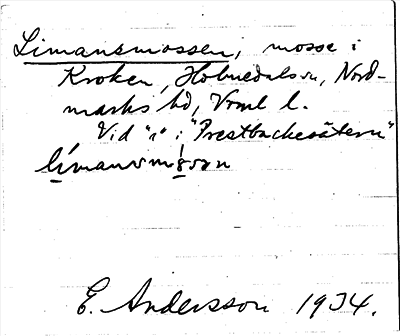 Limansmossen, mosse i
Kroken, Holmedals sn, Nord-
marks hd, Vrml l.
Vid "s" i "Prestbackesätern"
E. Andersson 1934.